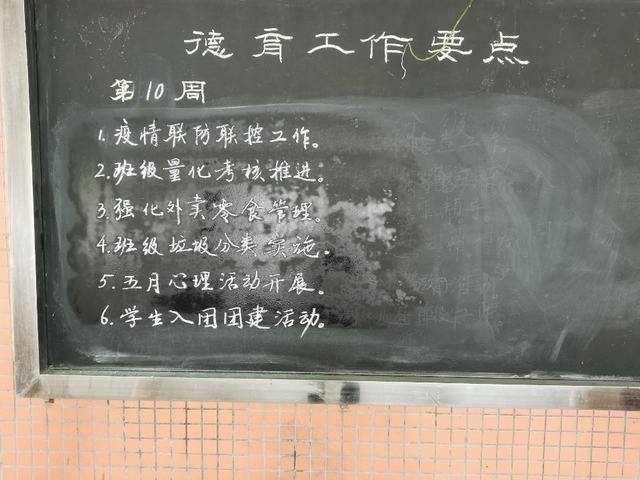 德育工作要点
第10周
1.疫情联防联控工作。
2.班级量化考核推进。
3.强化外卖零食管理。
4.班级垃圾分类实施.
5.五月心理活动开展。
6.学生入团团建活动。